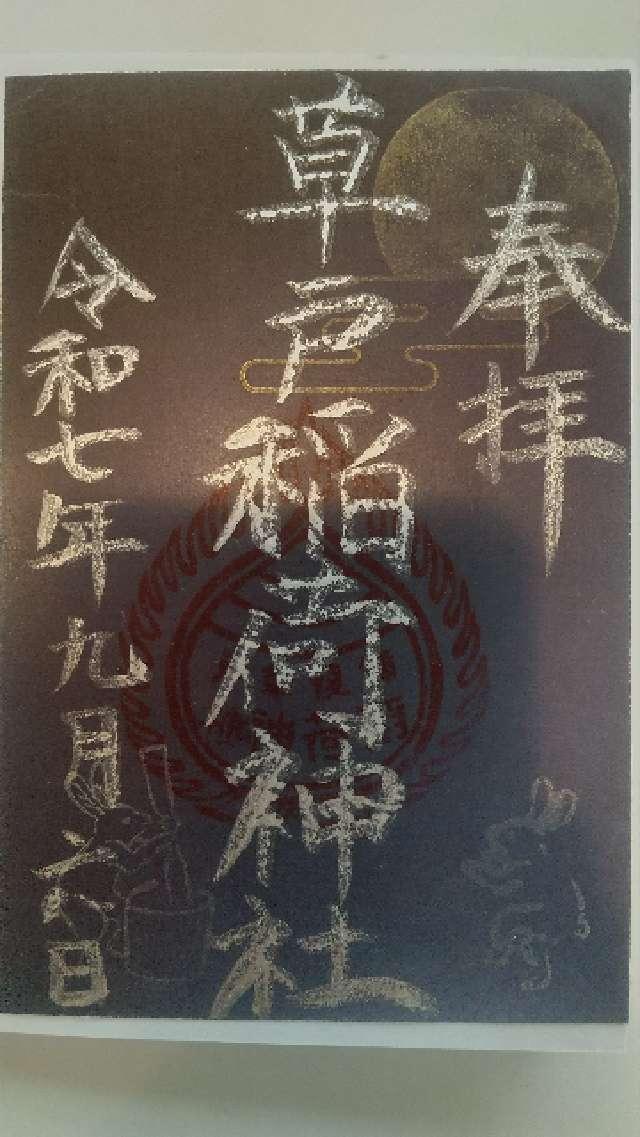 奉拝
草戸稲荷神社
令和七年九月六日